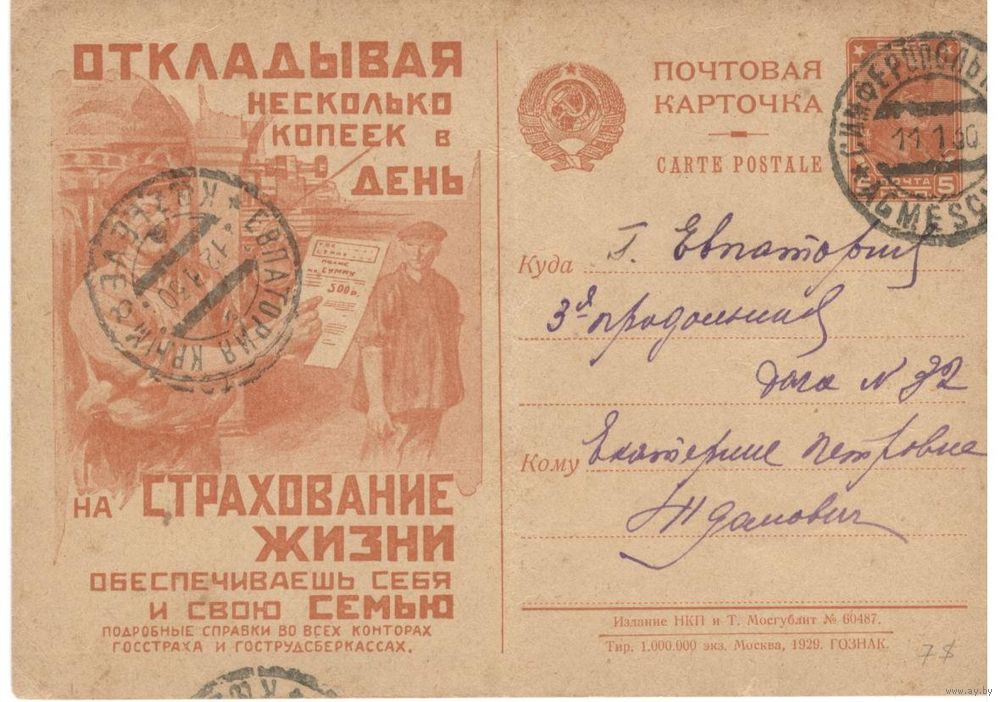 ОТКЛАДЫВАЯ
НЕСКОЛЬКО
КОПЕЕК В
ДЕНЬ
ПОЛИС
НА СУММУ
500 р.
НА СТРАХОВАНИЕ
ЖИЗНИ
ОБЕСПЕЧИВАЕШЬ СЕБЯ
И СВОЮ СЕМЬЮ
ПОДРОБНЫЕ СПРАВКИ ВО ВСЕХ КОНТОРАХ
ГОССТРАХА И ГОСТРУДСБЕРКАССАХ.
ЕВПАТОРИЯ КРЫМ
12.1.30
ПОЧТОВАЯ
КАРТОЧКА
CARTE POSTALE
СИМФЕРОПОЛЬ
11.1.30
AQMESÇ
5 ПОЧТА 5
Куда г. Евпатория
3я продольная
дача N 32
Кому Екатерине Петровне
Издание НКП и Т. Мосгублит № 60487.
Тир. 1.000.000 экз. Москва, 1929. ГОЗНАК.
7$
www.ay.by